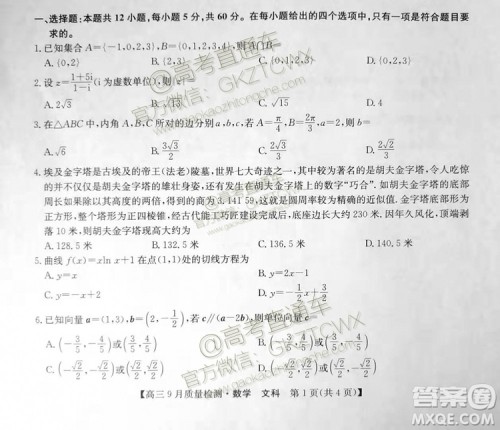 一、选择题：本题共 12 小题，每小题 5 分，共 60 分。在每小题给出的四个选项中，只有一项是符合题目要
求的。
1.已知集合 A={-1,0,2,3}，B={0,1,2,3}，则 A∩B=
A.{0,2} B.{0,2,3} C.{0,3} D.{-1,0,2,3}
2.设 z=(1+5i)/(1-i)(i 为虚数单位)，则|z|=
A.2√3 B.√13 C.√15 D.4
3.在△ABC 中，内角 A，B 所对的边分别 a，b，若 A=π/4，B=2π/3，a=2，则 b=
A.√6 C.2√3
4.埃及金字塔是古埃及的帝王(法老)陵墓，世界七大奇迹之一，其中较为著名的是胡夫金字塔。令人
吃惊的并不仅仅是胡夫金字塔的雄壮身姿，还有发生在胡夫金字塔上的数字“巧合”。如胡夫金字塔的底部
周长如果除以其高度的两倍，得到的商为 3.141 59，这就是圆周率较为精确的近似值。金字塔底部形为
正方形，整个塔形为正四棱锥，经古代能工巧匠建设完成后，底座边长大约 230 米。因年久风化，顶端剥
落 10 米，则胡夫金字塔现高大约为
A.128.5 米 B.132.5 米 C.136.5 米 D.140.5 米
5.曲线 f(x)=xln x+1 在点(1,1)处的切线方程为
A.y=x B.y=2x-1
6.已知向量 a=(1,3)，b=(2,-1/2)，若 c∥(a-2b)，则单位向量 c=
A.(-3/5,-4/5)或(3/5,4/5) B.(-3/5,4/5)或(3/5,-4/5)
C.(-√2/2,-√2/2)或(√2/2,√2/2) D.(-√2/2,√2/2)或(√2/2,-√2/2)
【高三 9 月质量检测·数学 文科 第 1 页(共 4 页)】
@高考直通车
官方微信：GKZTCWX